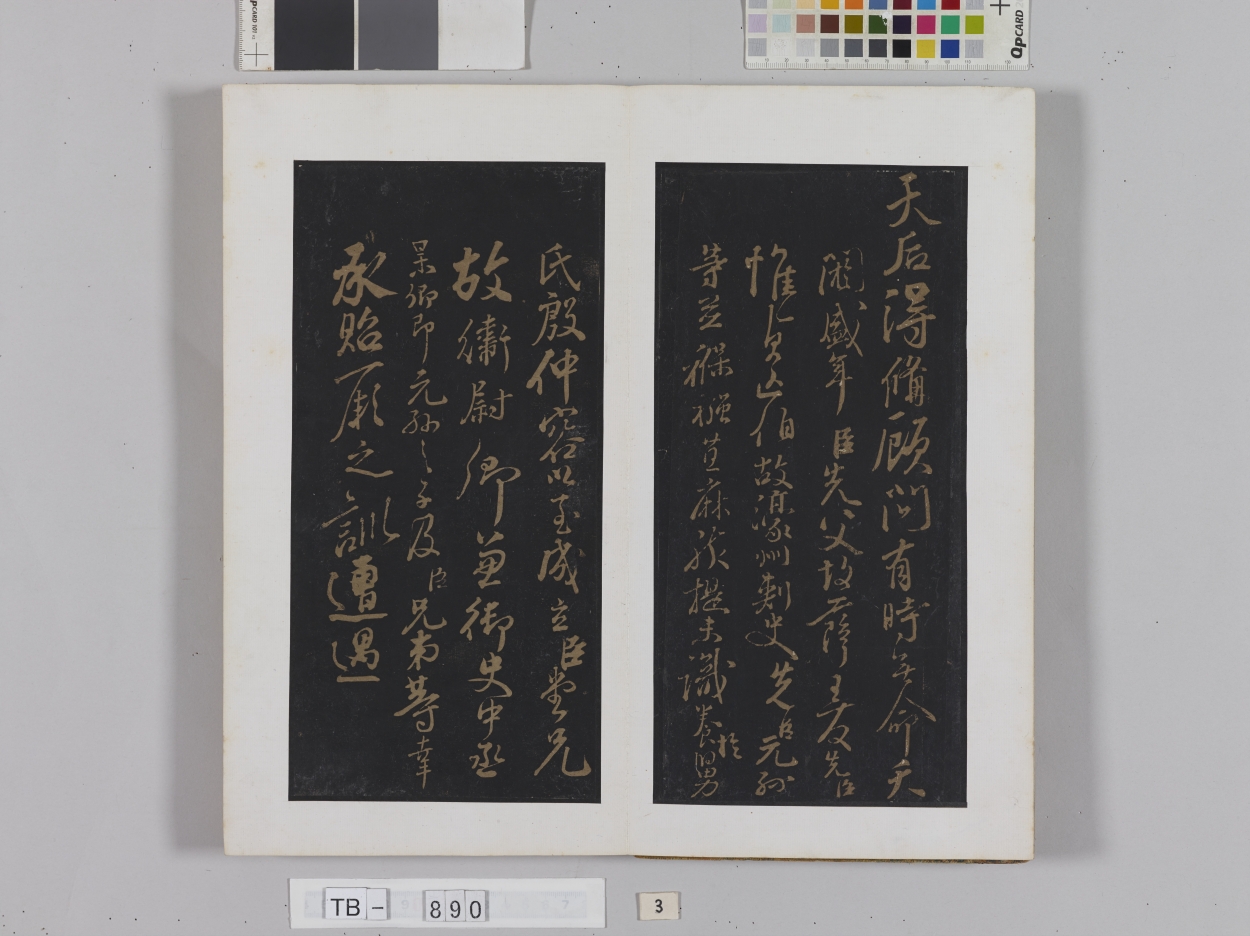 天后得備顧問有時無命夭
閼盛年臣先父故薛王友先臣
惟貞亡伯故濠州刺史先臣元孫
等並褓襁苴麻孩提未識養於舅
氏殷仲容以至成立臣堂兄
故衛尉卿兼御史中丞
杲卿即元孫之子及臣兄弟等幸
承貽厥之訓以遭遇
QPCARD
TB-890
3